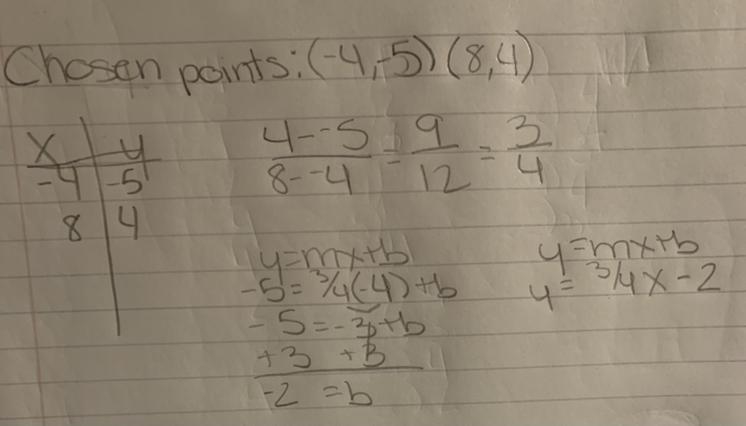 Chosen points: (-4,-5) (8,4)
x | y
-4 | -5
8 | 4
4--5/8--4 = 9/12 = 3/4
y=mx+b
-5=3/4(-4)+b
-5=-3+b
+3 +3
-2 =b
y=mx+b
y= 3/4x-2